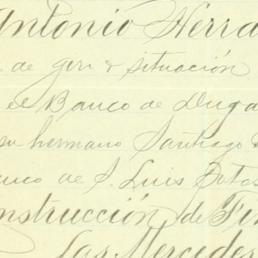 Antonio Herra
de giro & situación
el Banco de Duga
su hermano Santiago
nco de S. Luis Potos
nstrucción de Fin
Las Mercedes